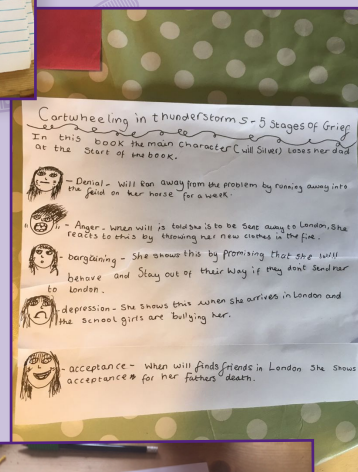 Cartwheeling in thunderstorms - 5 Stages of Grief
In this book the main character (will Silver) loses her dad
at the start of the book.
- Denial - Will Ran away from the problem by running away into
the feild on her horse for a week.
- Anger - When will is told she is to be Sent away to London, She
reacts to this by throwing her new clothes in the fire.
- bargaining - She shows this by promising that she will
behave and Stay out of their way if they dont Send her
to London.
- depression - She shows this when she arrives in London and
the school girls are bullying her.
- acceptance - When will finds friends in London She shows
acceptance for her fathers death.